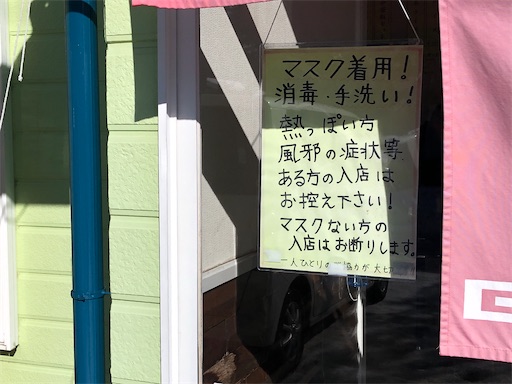 マスク着用！
消毒・手洗い！
熱っぽい方
風邪の症状等
ある方の入店は
お控え下さい！
マスクない方の
入店はお断りします。
一人ひとりの 協力が大切